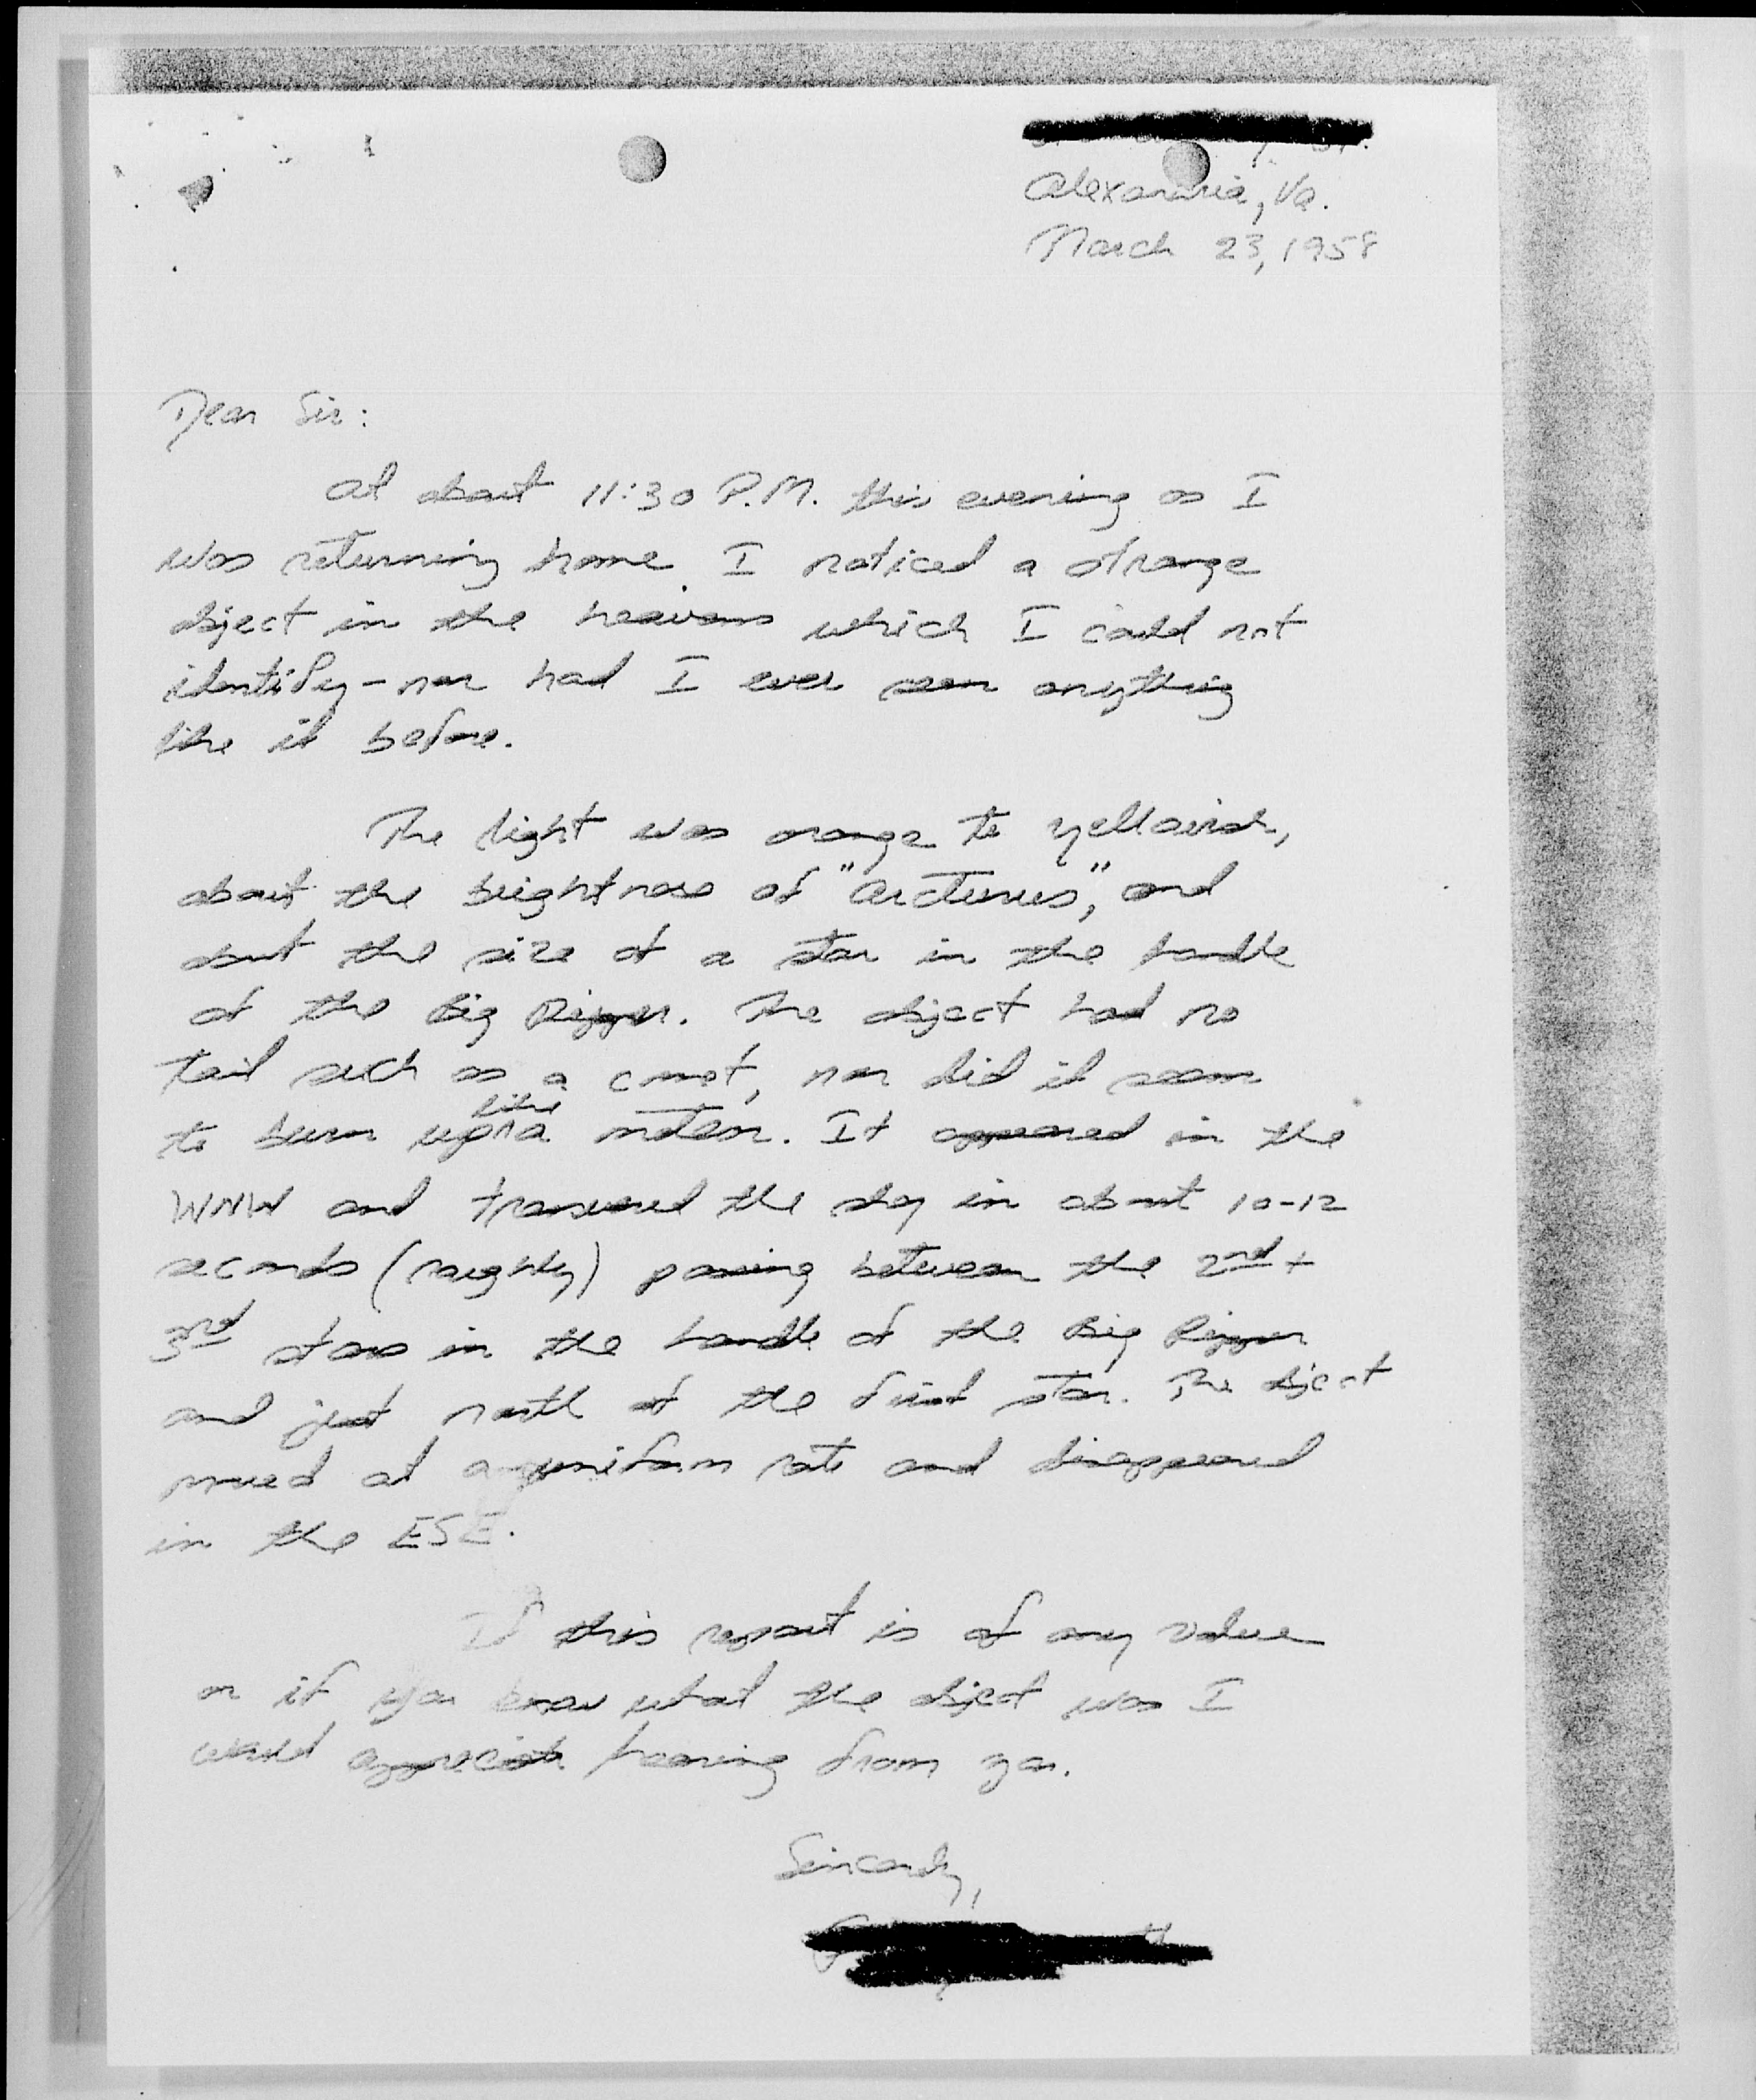 Alexandria, Va.
March 23, 1958
Dear Sir:
At about 11:30 P.M. this evening as I
was returning home, I noticed a strange
object in the heavens which I could not
identify - nor had I ever seen anything
like it before.
The light was orange to yellowish,
about the brightness of "Arcturus," and
about the size of a star in the handle
of the Big Dipper. The object had no
tail such as a comet, nor did it seem
to burn up like a meteor. It appeared in the
WNW and transversed the sky in about 10-12
seconds (roughly) passing between the 2nd +
3rd stars in the handle of the Big Dipper
and just north of the first star. The object
moved at a uniform rate and disappeared
in the ESE.
If this report is of any value
or if you know what the object was I
would appreciate hearing from you.
Sincerely,